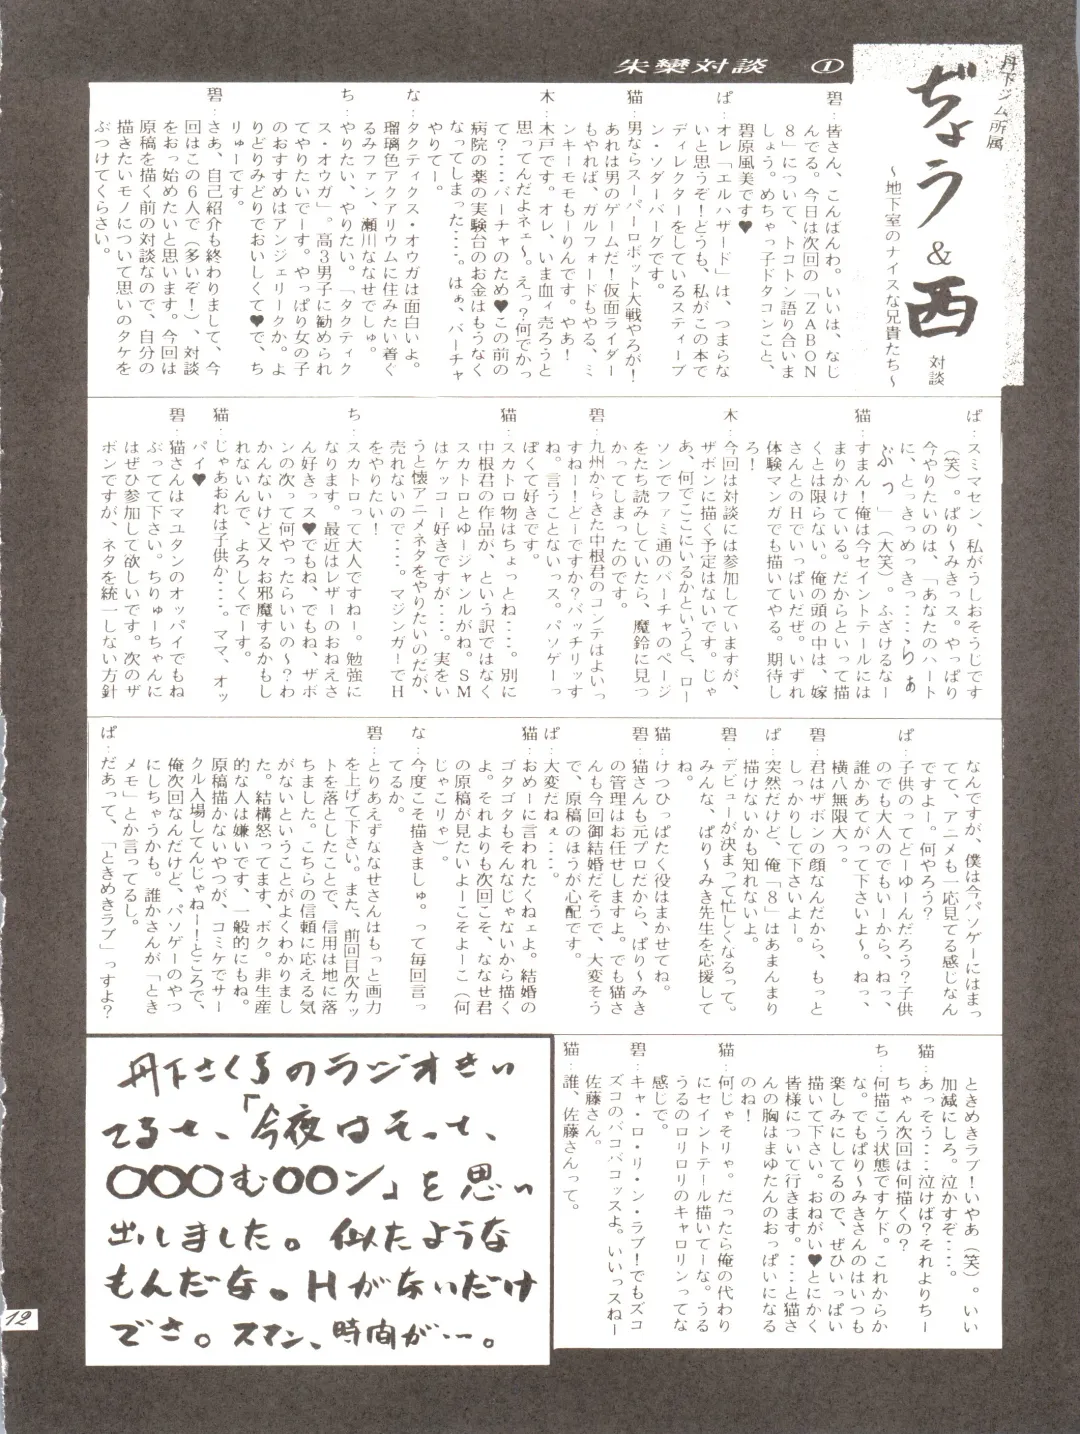 朱欒対談 ①
丹下ジム所属
ぢょう&西
対談
〜地下室のナイスな兄貴たち〜
碧：皆さん、こんばんわ。いいは、なじ
んでる。今日は次回の「ZABON
8」について、トコトン語り合いま
しょう。めちゃっ子ドタコンこと、
碧原風美です♥
ぱ：オレ「エルハザード」は、つまらな
いと思うぞ！どうも、私がこの本で
ディレクターをしているスティーブ
ン・ソダーバーグです。
猫：男ならスーパーロボット大戦やろが！
あれは男のゲームだ！仮面ライダー
もやれば、ガルフォードもやる、ミ
ンキーモモもーりんです。やあ！
木：木戸です。オレ、いま血ィ売ろうと
思ってんだよネェ〜。えっ？何でかっ
て？‥‥バーチャのため♥この前の
病院の薬の実験台のお金はもうなく
なってしまった‥‥。はぁ、バーチャ
やりてー。
な：タクティクス・オウガは面白いよ。
瑠璃色アクアリウムに住みたい着ぐ
るみファン、瀬川ななせでしゅ。
ち：やりたい、やりたい。「タクティク
ス・オウガ」。高3男子に勧められ
てやりたいでーす。やっぱり女の子
のおすすめはアンジェリークか。よ
りどりみどりでおいしくて♥で、ち
りゅーです。
碧：さあ、自己紹介も終わりまして、今
回はこの6人で（多いぞ！）、対談
をおっ始めたいと思います。今回は
原稿を描く前の対談なので、自分の
描きたいモノについて思いのタケを
ぶつけてくらさい。
ぱ：スミマセン、私がうしおそうじです
（笑）。ぱり〜みきっス。やっぱり
今やりたいのは、「あなたのハート
に、とっきめっきっ‥‥らぁ
ぶっ」（大笑）。ふざけるなー
猫：すまん！俺は今セイントテールには
まりかけている。だからといって描
くとは限らない。俺の頭の中は、嫁
さんとのHでいっぱいだぜ。いずれ
体験マンガでも描いてやる。期待し
ろ！
木：今回は対談には参加していますが、
ザボンに描く予定はないです。じゃ
あ、何でここにいるかというと、ロー
ソンでファミ通のバーチャのページ
をたち読みしていたら、魔鈴に見つ
かってしまったのです。
碧：九州からきた中根君のコンテはよいっ
すねー！どーですか？バッチリッす
ね。言うことないっス。パソゲーっ
ぽくて好きです。
猫：スカトロ物はちょっとね‥‥。別に
中根君の作品が、という訳ではなく
スカトロとゆージャンルがね。SM
はケッコー好きですが‥‥。実をい
うと懐アニメネタをやりたいのだが、
売れないので‥‥。マジンガーでH
をやりたい！
ち：スカトロって大人ですねー。勉強に
なります。最近はレザーのおねえさ
ん好きっス♥でもね、でもね、ザボ
ンの次って何やったらいいの〜？わ
かんないけど又々お邪魔するかもし
れないんで、よろしくでーす。
猫：じゃあおれは子供か‥‥。ママ、オッ
パイ♥
碧：猫さんはマユタンのオッパイでもね
ぶってて下さい。ちりゅーちゃんに
はぜひ参加して欲しいです。次のザ
ボンですが、ネタを統一しない方針
なんですが、僕は今パソゲーにはまっ
てて、アニメも一応見てる感じなん
ですよー。何やろう？
ぱ：子供のってどーゆーんだろう？子供
のでも大人のでもいーから、ねっ、
誰かあてがって下さいよ〜。ねっ、
横八無限大っ。
碧：君はザボンの顔なんだから、もっと
しっかりして下さいよー。
ぱ：突然だけど、俺「8」はあまんまり
描けないかも知れないよ。
碧：デビューが決まって忙しくなるって。
みんな、ぱり〜みき先生を応援して
ね。
猫：けつひっぱたく役はまかせてね。
碧：猫さんも元プロだから、ぱり〜みき
の管理はお任せしますよ。でも猫さ
んも今回御結婚だそうで、大変そう
で、原稿のほうが心配です。
ぱ：大変だねぇ‥‥。
猫：おめーに言われたくねェよ。結婚の
ゴタゴタもそんなじゃないから描く
よ。それよりも次回こそ、ななせ君
の原稿が見たいよーこそよーこ（何
じゃこりゃ）。
な：今度こそ描きましゅ。って毎回言っ
てるか。
碧：とりあえずななせさんはもっと画力
を上げて下さい。また、前回目次カッ
トを落としたことで、信用は地に落
ちました。こちらの信頼に応える気
がないということがよくわかりまし
た。結構怒ってます、ボク。非生産
的な人は嫌いです、一般的にもね。
原稿描かないやつが、コミケでサー
クル入場してんじゃねー！ところで、
俺次回なんだけど、パソゲーのやつ
にしちゃうかも。誰かさんが「とき
メモ」とか言ってるし。
ぱ：だあって、「ときめきラブ」っすよ？
ときめきラブ！いやあ（笑）。いい
加減にしろ。泣かすぞ‥‥。
猫：あっそう‥‥泣けば？それよりちー
ちゃん次回は何描くの？
ち：何描こう状態ですケド。これからか
な。でもぱり〜みきさんのはいつも
楽しみにしてるので、ぜひいっぱい
描いて下さい。おねがい♥とにかく
皆様について行きます。‥‥と猫さ
んの胸はまゆたんのおっぱいになる
のね！
猫：何じゃそりゃ。だったら俺の代わり
にセイントテール描いてーな。うる
うるのロリロリのキャロリンってな
感じで。
碧：キャ・ロ・リ・ン・ラブ！でもズコ
ズコのバコバコッスよ。いいっスねー
佐藤さん。
猫：誰、佐藤さんって。
丹下さくらのラジオきい
てるせ、「今夜はそっと、
〇〇〇む〇〇ン」を思い
出しました。似たような
もんだな。Hがないだけ
でさ。スマン、時間が…。
12